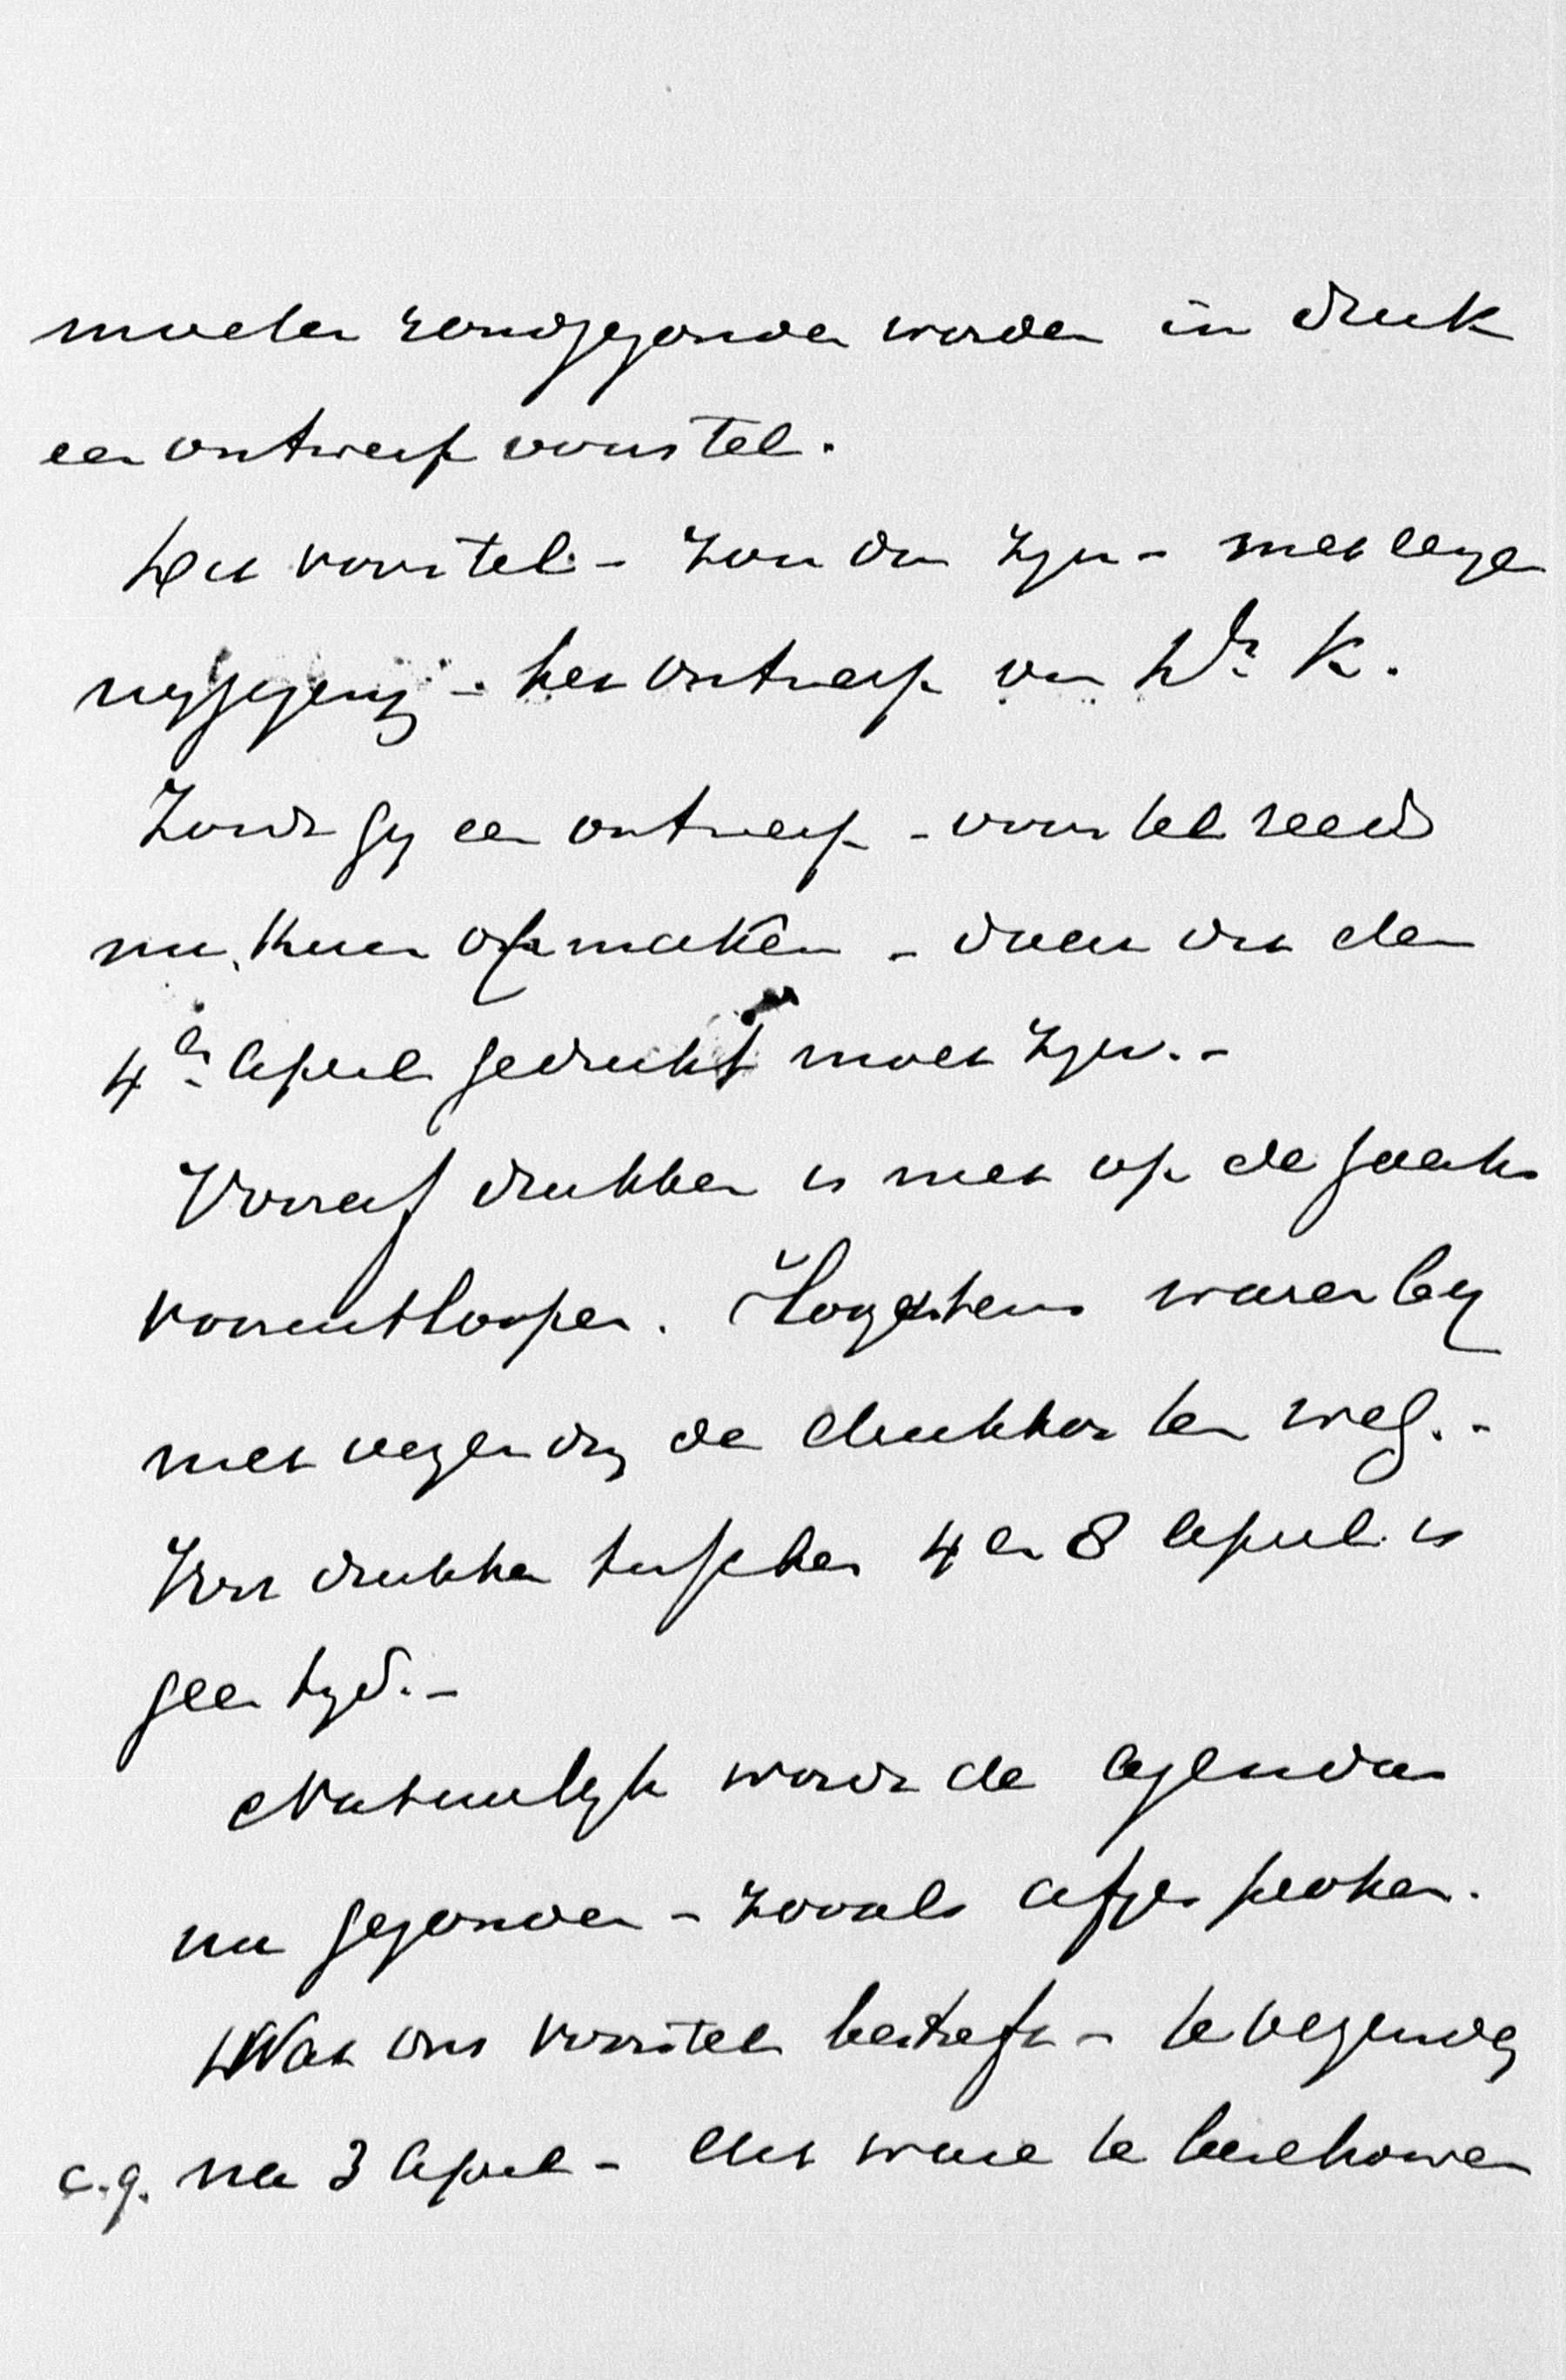 moeten rondgezonden worden in druk
een ontwerp voorstel.
Dit voorstel - zou dan zijn - met eenige
wijziging - het ontwerp van Dr K.
Zoudt gij een ontwerp - voorstel reeds
nu kunnen opmaken - daar dit den
4en April gedrukt moet zijn. -
Vooraf drukken is niet op de zaak
vooruitloopen. Hoogstens waren bij
niet weg de drukkosten weg. -
Voor drukken tusschen 4 en 8 April is
geen tijd. -
Natuurlijk wordt de agenda
nu gezonden - zooals afgesproken.
Wat ons voorstel betreft - te
c.q. na 3 April - dit ware te beschouwen